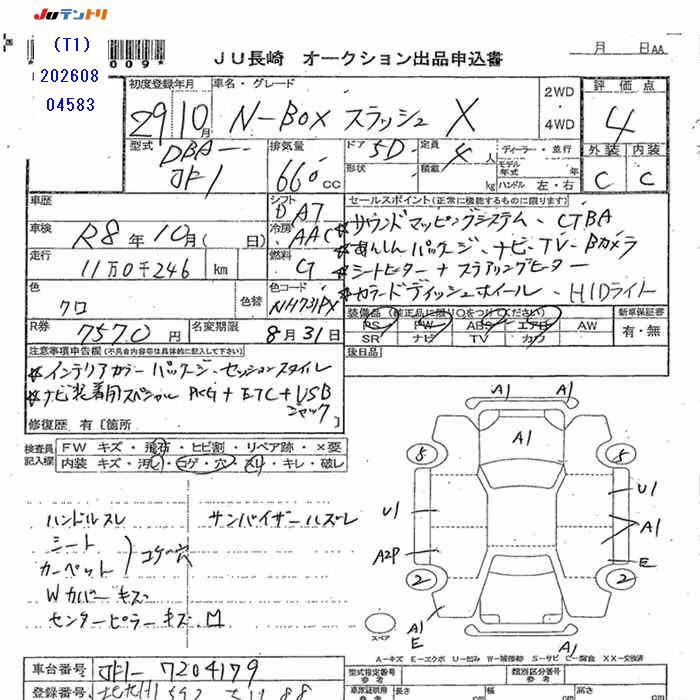 JUテントリ
(T1)
202608
04583
*009*
JU長崎 オークション出品申込書
月 日 AA
初度登録年月 車名・グレード 2WD ・ 4WD 評価点
29 10月 N-BOX スラッシュ X 4
型式 排気量 ドア 定員 ディーラー・並行 外装 内装
DBA- 5D 4人
JF1 660cc 形状 積載 kg モデル年式 年 ハンドル 左・右 C C
車歴 シフト セールスポイント(正常に機能するものに限ります)
DAT サウンドマッピングシステム、CTBA
車検 R8年10月(日) 冷房 AAC あんしんパッケージ、ナビ・TV・Bカメラ
走行 11万0千246km 燃料 G シートヒーター+ステアリングヒーター
色 クロ 色替 色コード NH731PX カラードディッシュホイール、HIDライト
R券 7570円 名変期限 8月31日
装備品(純正品に限り○をつけてください) 新車保証書
PS PW ABS エアB AW 有・無
SR ナビ TV カワ
注意事項申告欄(不具合内容等は具体的に記入して下さい) 後日品
インテリアカラーパッケージ・セッションスタイル
ナビ装着用スペシャルPKG+ETC+USB
ジャック
修復歴 有[箇所
検査員記入欄 FW キズ・飛石・ヒビ割・リペア跡・×要
内装 キズ・汚レ・コゲ・穴・スレ・キレ・破レ
ハンドルスレ サンバイザーハズレ
シート
カーペット コゲ穴
Wカバーキズ
センターピラーキズM
A1 A1
A1
5 5
U1 U1
A1
A2P E
2 2
A1
E
A1
スペア
A-キズ E-エクボ U-凹み W-補修跡 S-サビ C-腐食 XX-交換済
車台番号 JF1-7204179
型式指定番号 類別区分番号
登録番号
長さ 幅 高さ
cm cm cm